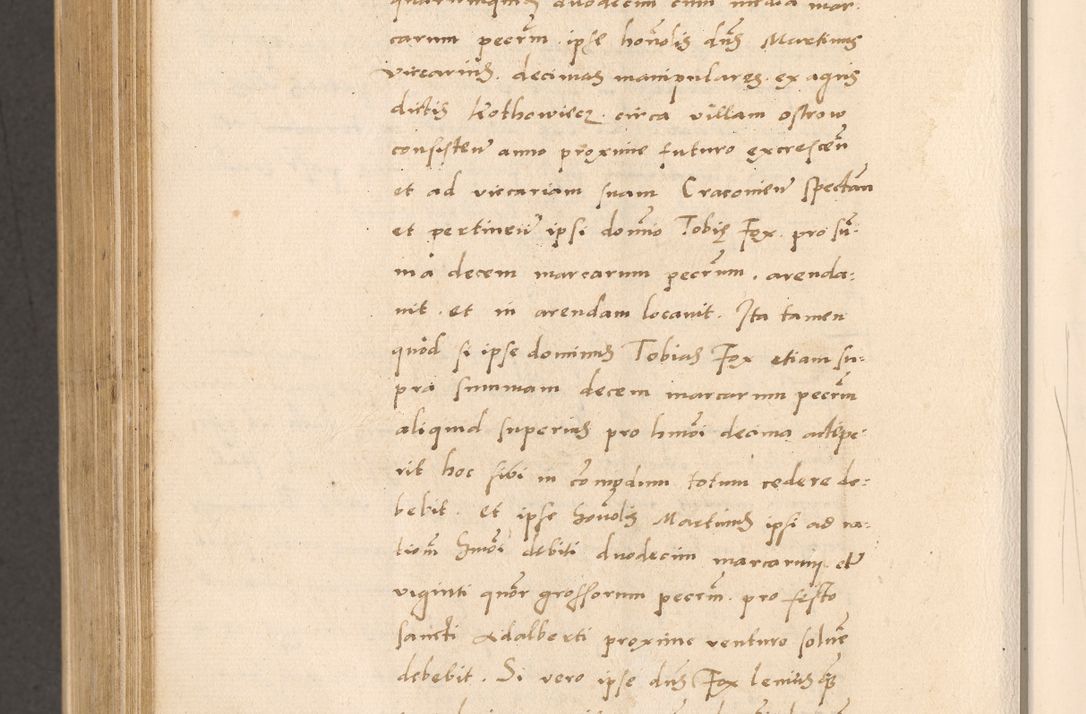 quatuorque duodecim cum media mar:
carum pecūm ipse honōlis dūs Martinus
vicearius. decimas manipulares. ex agris
dictis Kothowiecz. circa villam ostrow
consisteñ anno proxime futuro excresceñ
et ad viccariam suam Cracovieñ spectan
et pertineñ ipsi domīno Tobię Fox. pro su:
ma decem marcarum pecūm. arenda:
vit. et in arendam locavit. Ita tamen
quòd si ipse dominus Tobias Fox etiam su:
pra summam decem marcarum pecūm
aliquid superius pro hmōi decima accepe:
rit hoc sibi in compdum totum cedere de:
bebit. Et ipse honōlis Martinus ipsi ad ra:
tionē hmōi debiti duodecim marcarum et
viginti quōr grossorum pecūm. pro festo
sancti Adalberti proxime venturo solvē
debebit. Si vero ipse dūs Fox